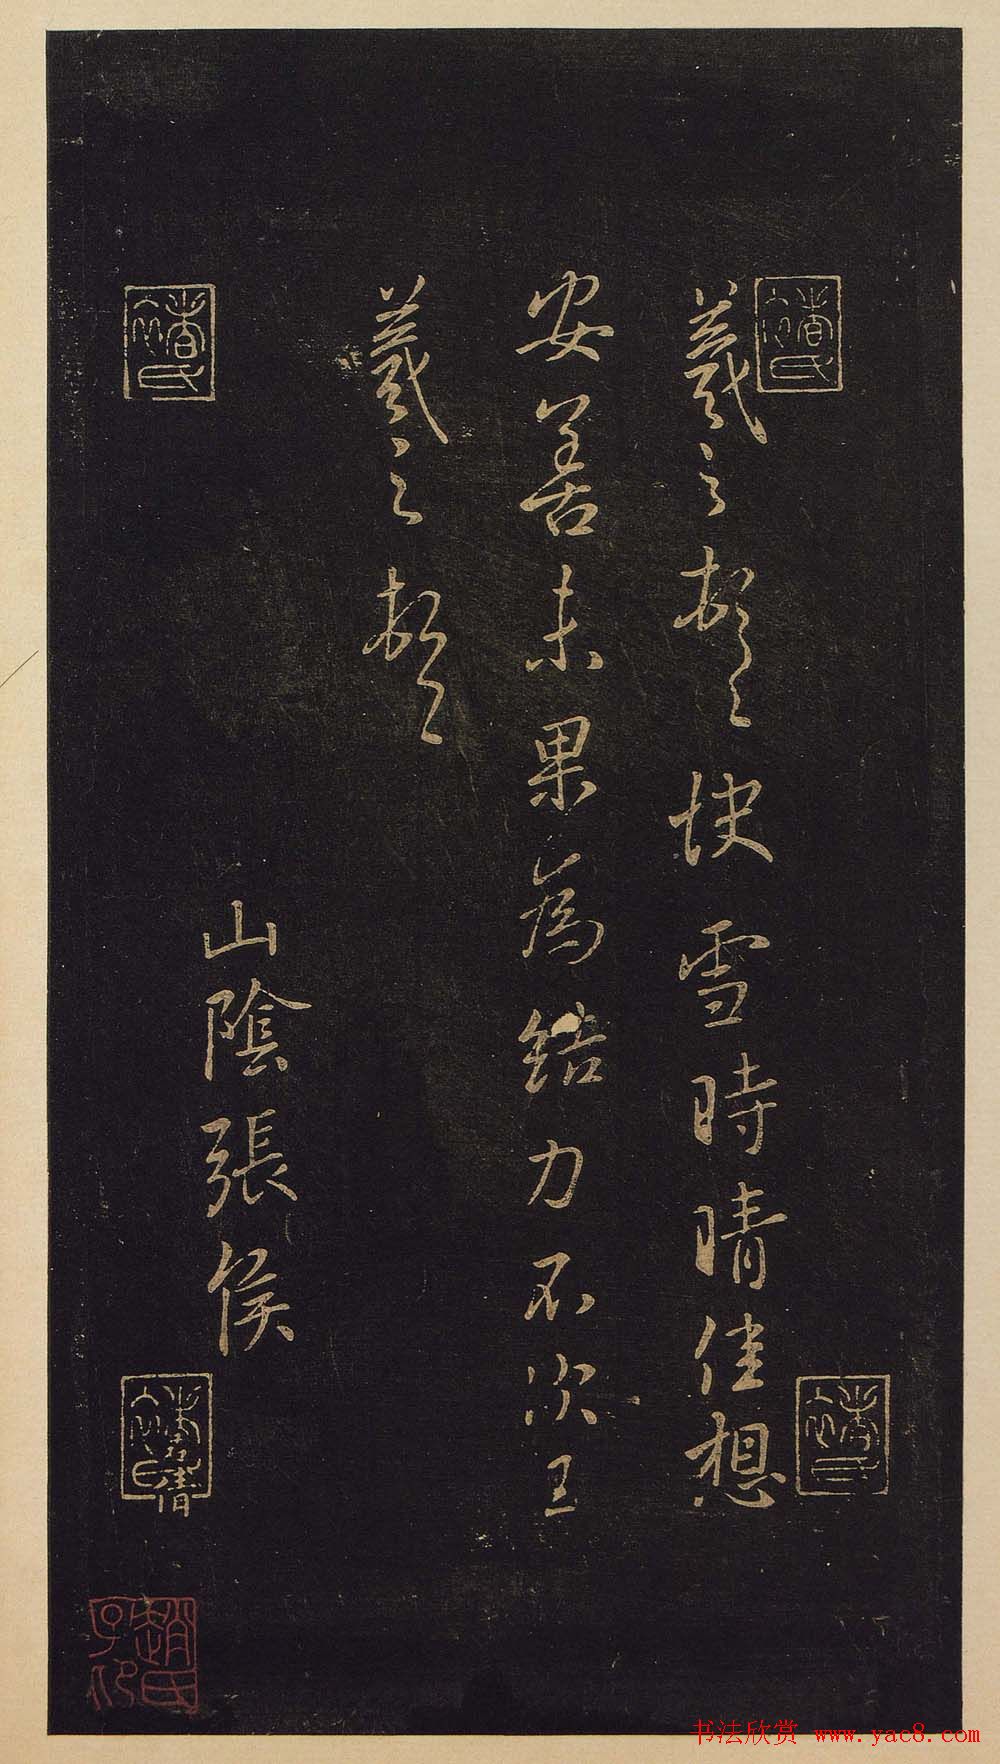 羲之頓首快雪時晴佳想
安善未果為結力不次王
羲之頓首
山陰張侯
君倩
書法欣赏 www.yac8.com